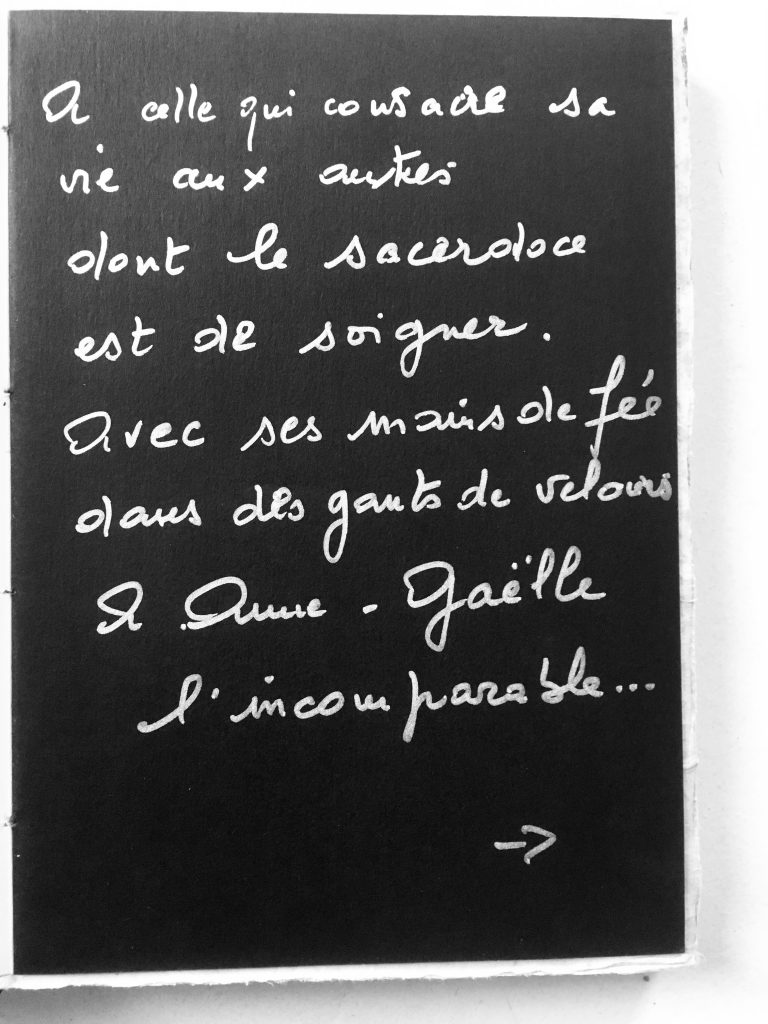 A celle qui consacre sa
vie aux autres
dont le sacerdoce
est de soigner.
Avec ses mains de fée
dans des gants de velours
A Anne-Gaëlle
l'incomparable...
→